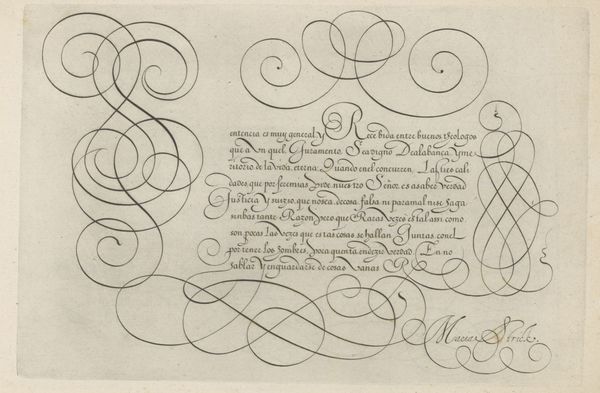 entencia es muy general y Rece bida entre buenos theologos
que a vn quel Guramento, Sea digno De alabança y me
ritorio de la vida eterna: Quando en el concurren Las tres cali
dades, que por Jeremias Pide nuestro Señor, es a saber verdad
Justicia y juizio, que no sea de cosa falsa ni para mal ni se haga
sin bastante Razon, pero que Raras Vezes estal assi como
son pocas Las vezes que estas cosas se hallan Juntas, con el
por tener los hombres, poca quenta en dezir verdad. En no
hablar Y en guardarse de cosas Vanas
Marias Strick.